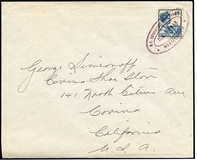 George Simeonoff
Covina Shoe Store
141 North Citrus Ave
Covina
California
U.S.A.